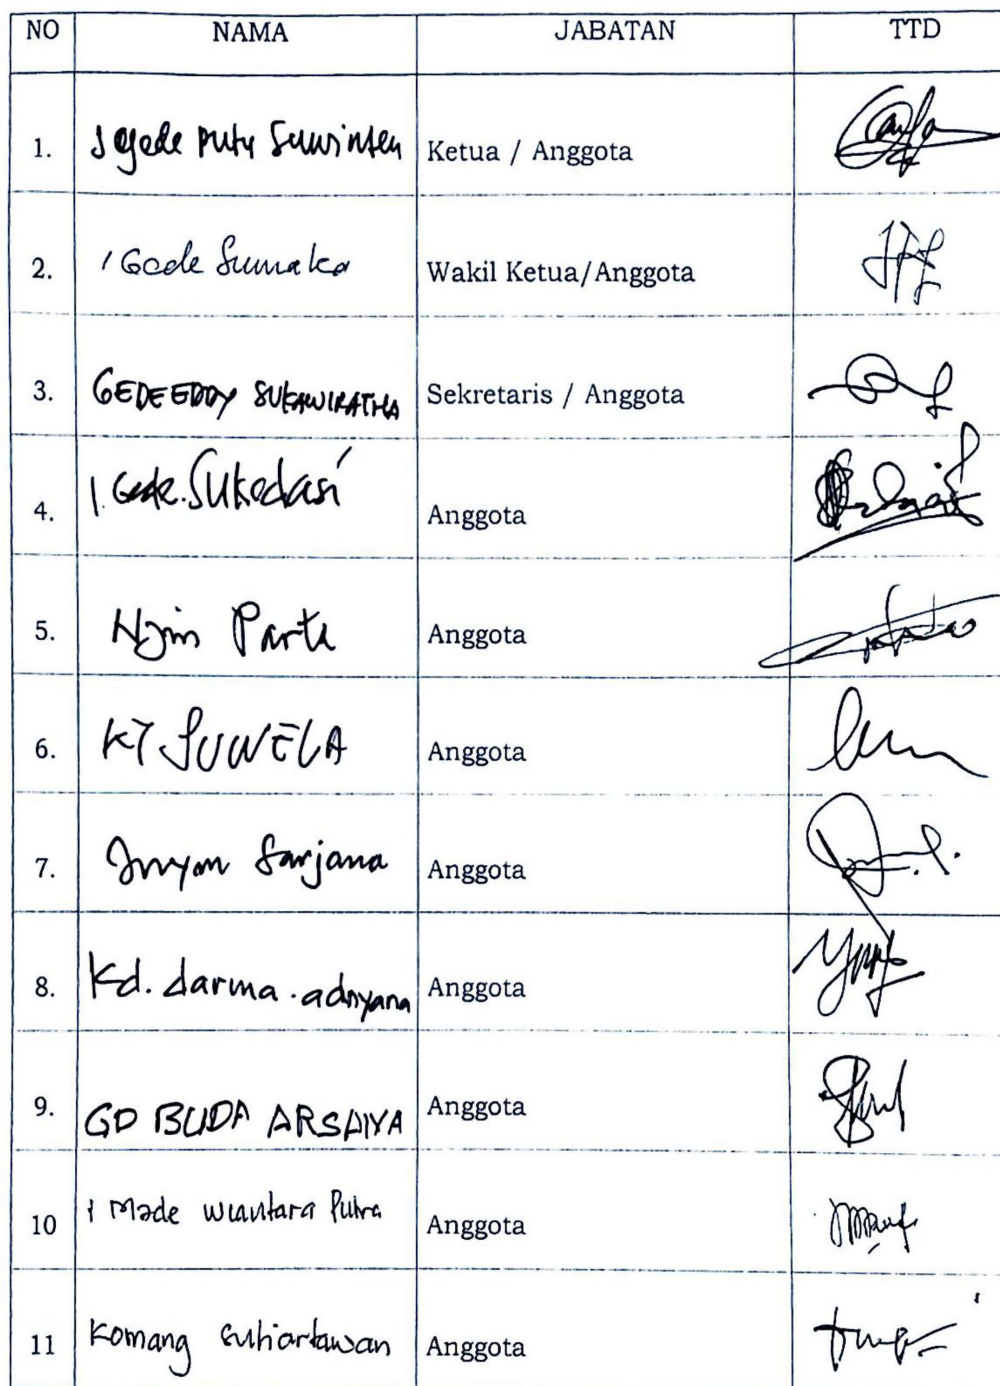 NO NAMA JABATAN TTD
1. I Gede Putu Suwinten Ketua / Anggota
2. I Gede Sumaka Wakil Ketua/Anggota
3. GEDE EDDY SUKAWIRATHA Sekretaris / Anggota
4. I. Gede. Sukedasi Anggota
5. Parta Anggota
6. KT SUWELA Anggota
7. Sarjana Anggota
8. Kd. darma . adnyana Anggota
9. GD BUDA Anggota
10 I Made Wiantara Putra Anggota
11 Komang Suhiartawan Anggota